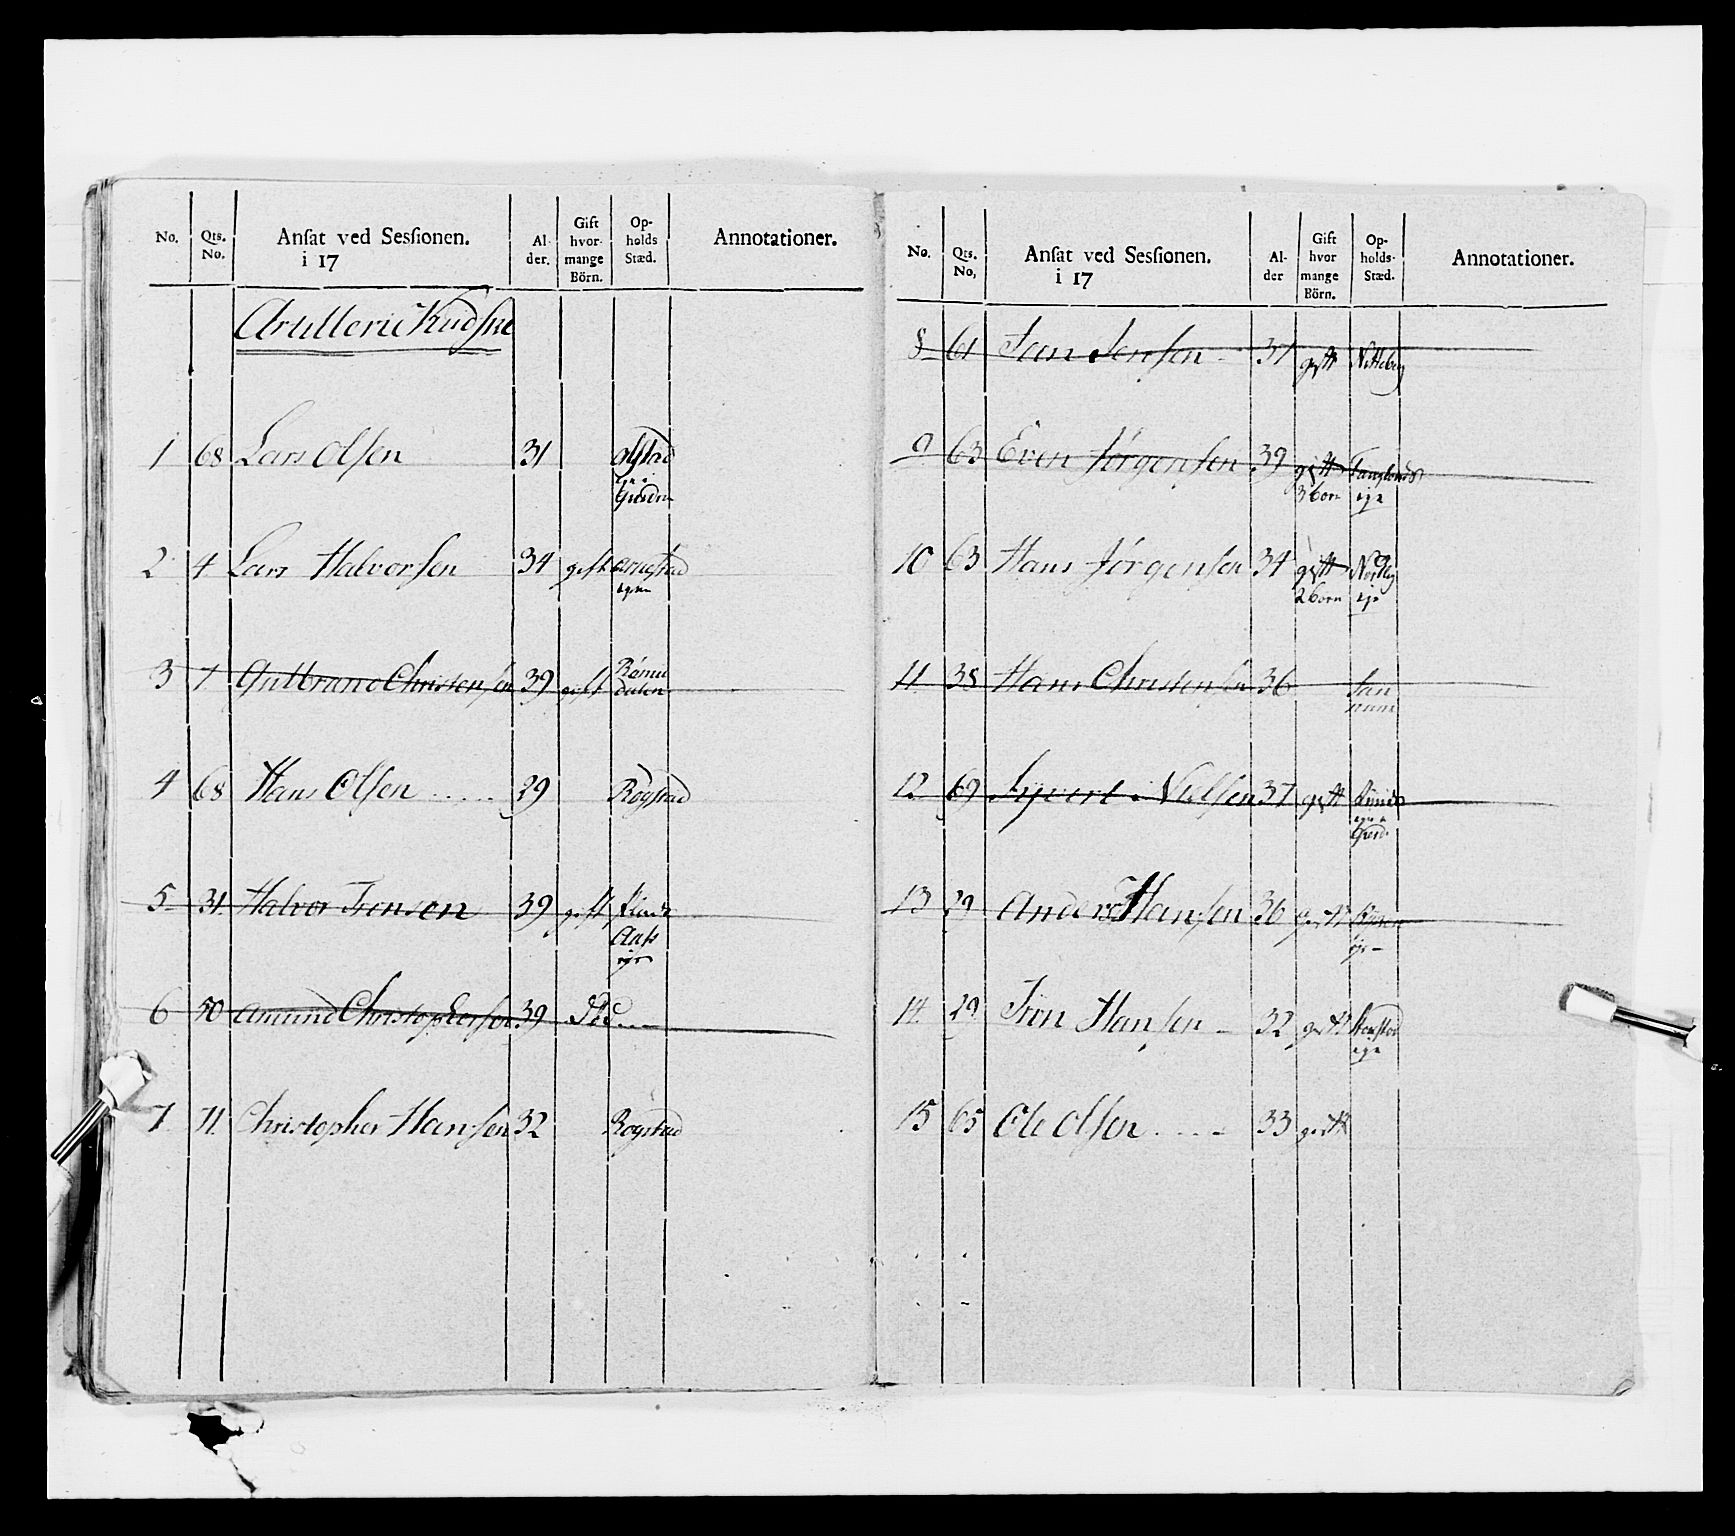 No. Qts. No. Ansat ved Sessionen. i 17 Al- der. Gift hvor- mange Börn. Op- holds Stæd. Annotationer.
Artillerie Kudske
1 68 Lars Olsen 31 Olstad
2 4 Lars Halvorsen 34 gift Arnestad
3 7 Gulbrand Christensen 39 gift
4 68 Hans Olsen 29 Rogstad
5 31 Halvor Iversen 39 gift
6 50 Amund Christophersen 39 Död
7 71 Christopher Hansen 32 Rogstad
No. Qts. No, Ansat ved Sessionen. i 17 Al- der Gift hvor mange Börn. Op- holds- Stæd. Annotationer.
8 61 Jens Jensen 37 gift Nitteberg
9 63 Even Jörgensen 39 gift
3 born eje
10 63 Hans Jörgensen 34 gift Nordby
2 born eje
11 38 Hans Christensen 36
12 69 Syvert Nielsen 37 gift
13 29 Anders Hansen 36 gift
eje
14 29 Iver Hansen 32 gift
eje
15 65 Ole Olsen 33 gift